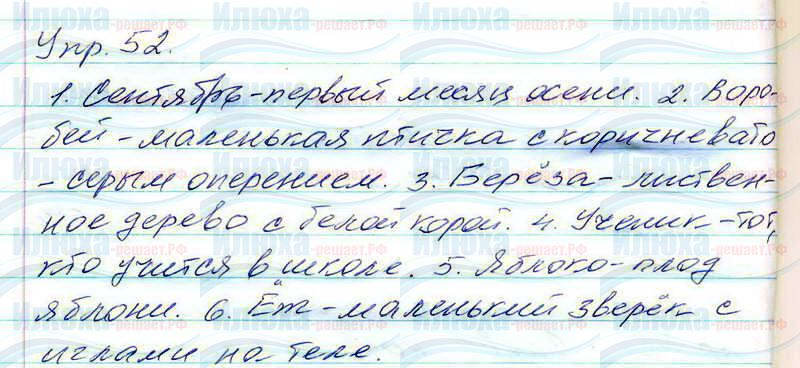 Упр. 52.
1. Сентябрь - первый месяц осени. 2. Воро-
бей - маленькая птичка с коричневато
- серым оперением. 3. Берёза - листвен-
ное дерево с белой корой. 4. Ученик - тот,
кто учится в школе. 5. Яблоко - плод
яблони. 6. Ёж - маленький зверёк с
иглами на теле.